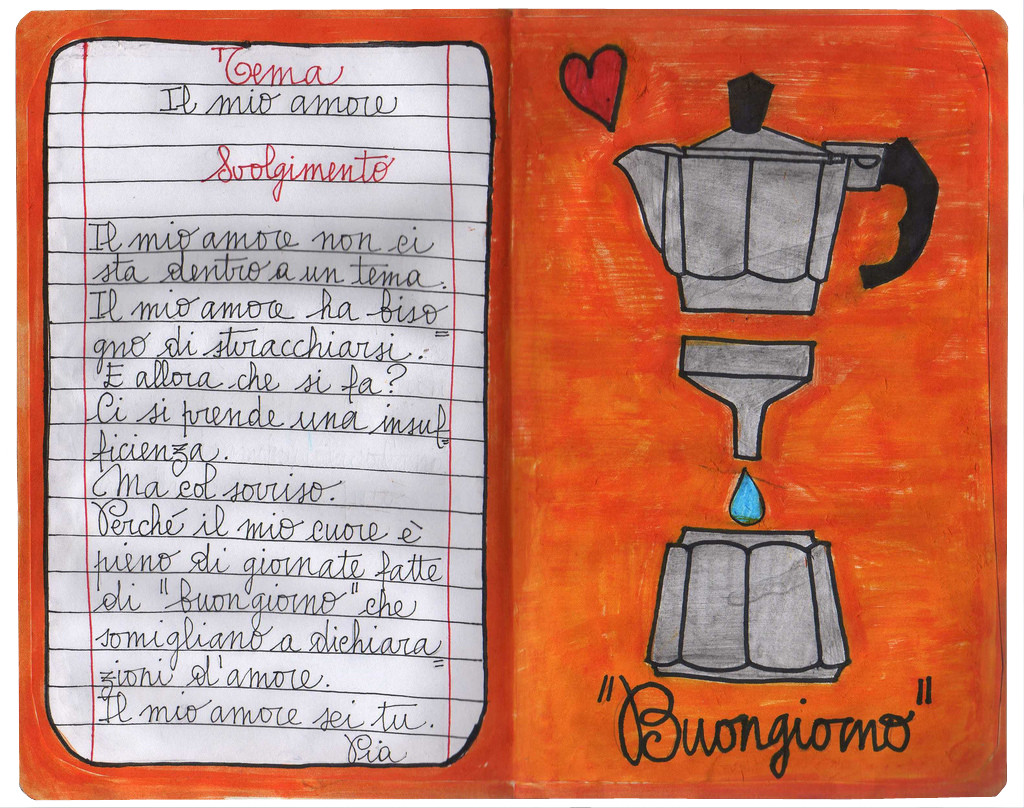 Tema
Il mio amore
Svolgimento
Il mio amore non ci
sta dentro a un tema.
Il mio amore ha biso=
gno di stracchiarsi.
E allora che si fa?
Ci si prende una insuf=
ficienza.
Ma col sorriso.
Perché il mio cuore è
pieno di giornate fatte
di "buongiorno" che
somigliano a dichiara=
zioni d'amore.
Il mio amore sei tu.
Pia
"Buongiorno"